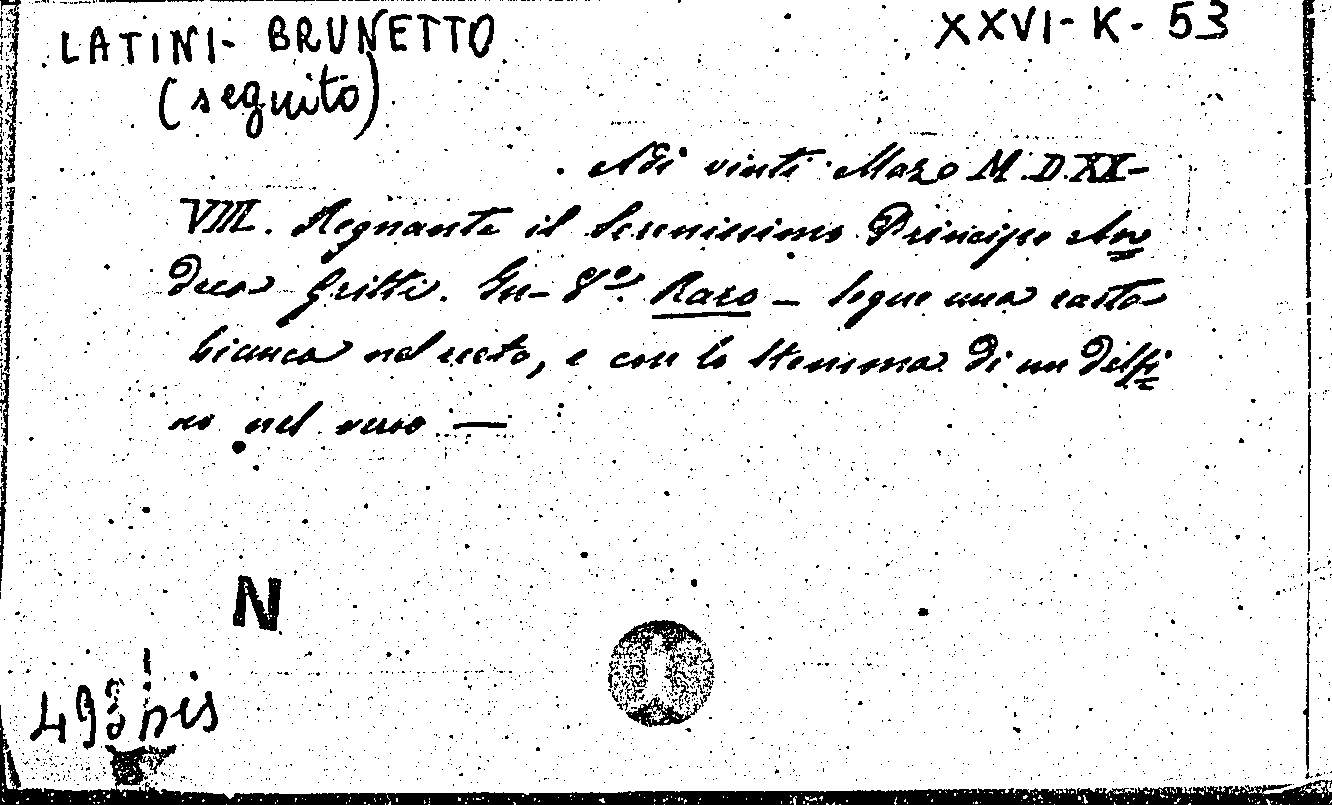 LATINI - BRUNETTO XXVI - K - 53
(seguito)
. Adi vinti Mazo M.D.XX-
VIII. Regnante il Serenissimo Principe An
drea Gritti. In - 8º. Raro — Segue una carta
bianca nel recto, e con lo Stemma di un Delfi
no nel verso —
N
493 bis